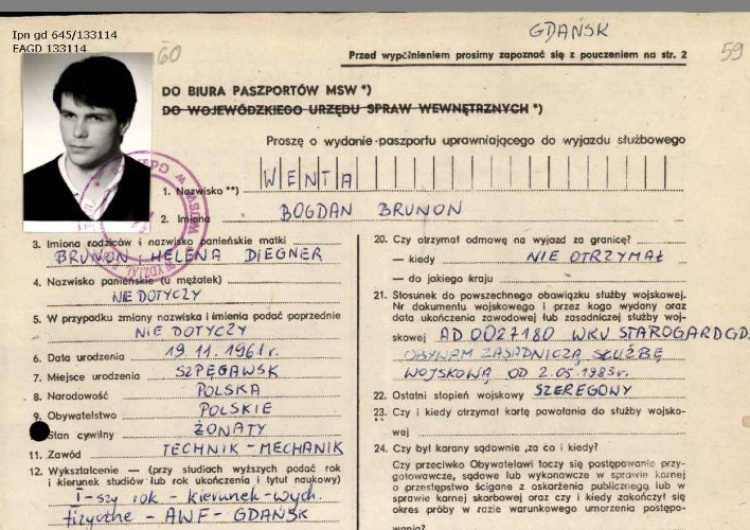 Ipn gd 645/133114
EAGD 133114
60
GDAŃSK
Przed wypełnieniem prosimy zapoznać się z pouczeniem na str. 2
59
DO BIURA PASZPORTÓW MSW *)
DO WOJEWÓDZKIEGO URZĘDU SPRAW WEWNĘTRZNYCH *)
Proszę o wydanie paszportu uprawniającego do wyjazdu służbowego
1. Nazwisko **) WENTA
2. Imiona BOGDAN BRUNON
3. Imiona rodziców i nazwisko panieńskie matki
BRUNON, HELENA DIEGNER
4. Nazwisko panieńskie (u mężatek)
NIE DOTYCZY
5. W przypadku zmiany nazwiska i imienia podać poprzednie
NIE DOTYCZY
6. Data urodzenia 19.11.1961r.
7. Miejsce urodzenia SZPĘGAWSK
8. Narodowość POLSKA
9. Obywatelstwo POLSKIE
Stan cywilny ŻONATY
11. Zawód TECHNIK-MECHANIK
12. Wykształcenie — (przy studiach wyższych podać rok
i kierunek studiów lub rok ukończenia i tytuł naukowy)
I-szy rok - kierunek-wych.
fizyczne - AWF - GDAŃSK
20. Czy otrzymał odmowę na wyjazd za granicę?
— kiedy NIE OTRZYMAŁ
— do jakiego kraju
21. Stosunek do powszechnego obowiązku służby wojskowej.
Nr dokumentu wojskowego i przez kogo wydany oraz
data ukończenia zawodowej lub zasadniczej służby woj-
skowej AD 0027180 WKU STAROGARD GD.
ODBYWAM ZASADNICZĄ SŁUŻBĘ
WOJSKOWĄ OD 2.05.1983r.
22. Ostatni stopień wojskowy SZEREGOWY
23. Czy i kiedy otrzymał kartę powołania do służby wojsko-
wej
24. Czy był karany sądownie, za co i kiedy?
Czy przeciwko Obywatelowi toczy się postępowanie przy-
gotowawcze, sądowe lub wykonawcze w sprawie karnej
o przestępstwo ścigane z oskarżenia publicznego, lub w
sprawie karnej skarbowej oraz czy i kiedy zakończył się
okres próby w razie warunkowego umorzenia postępo-
wania?